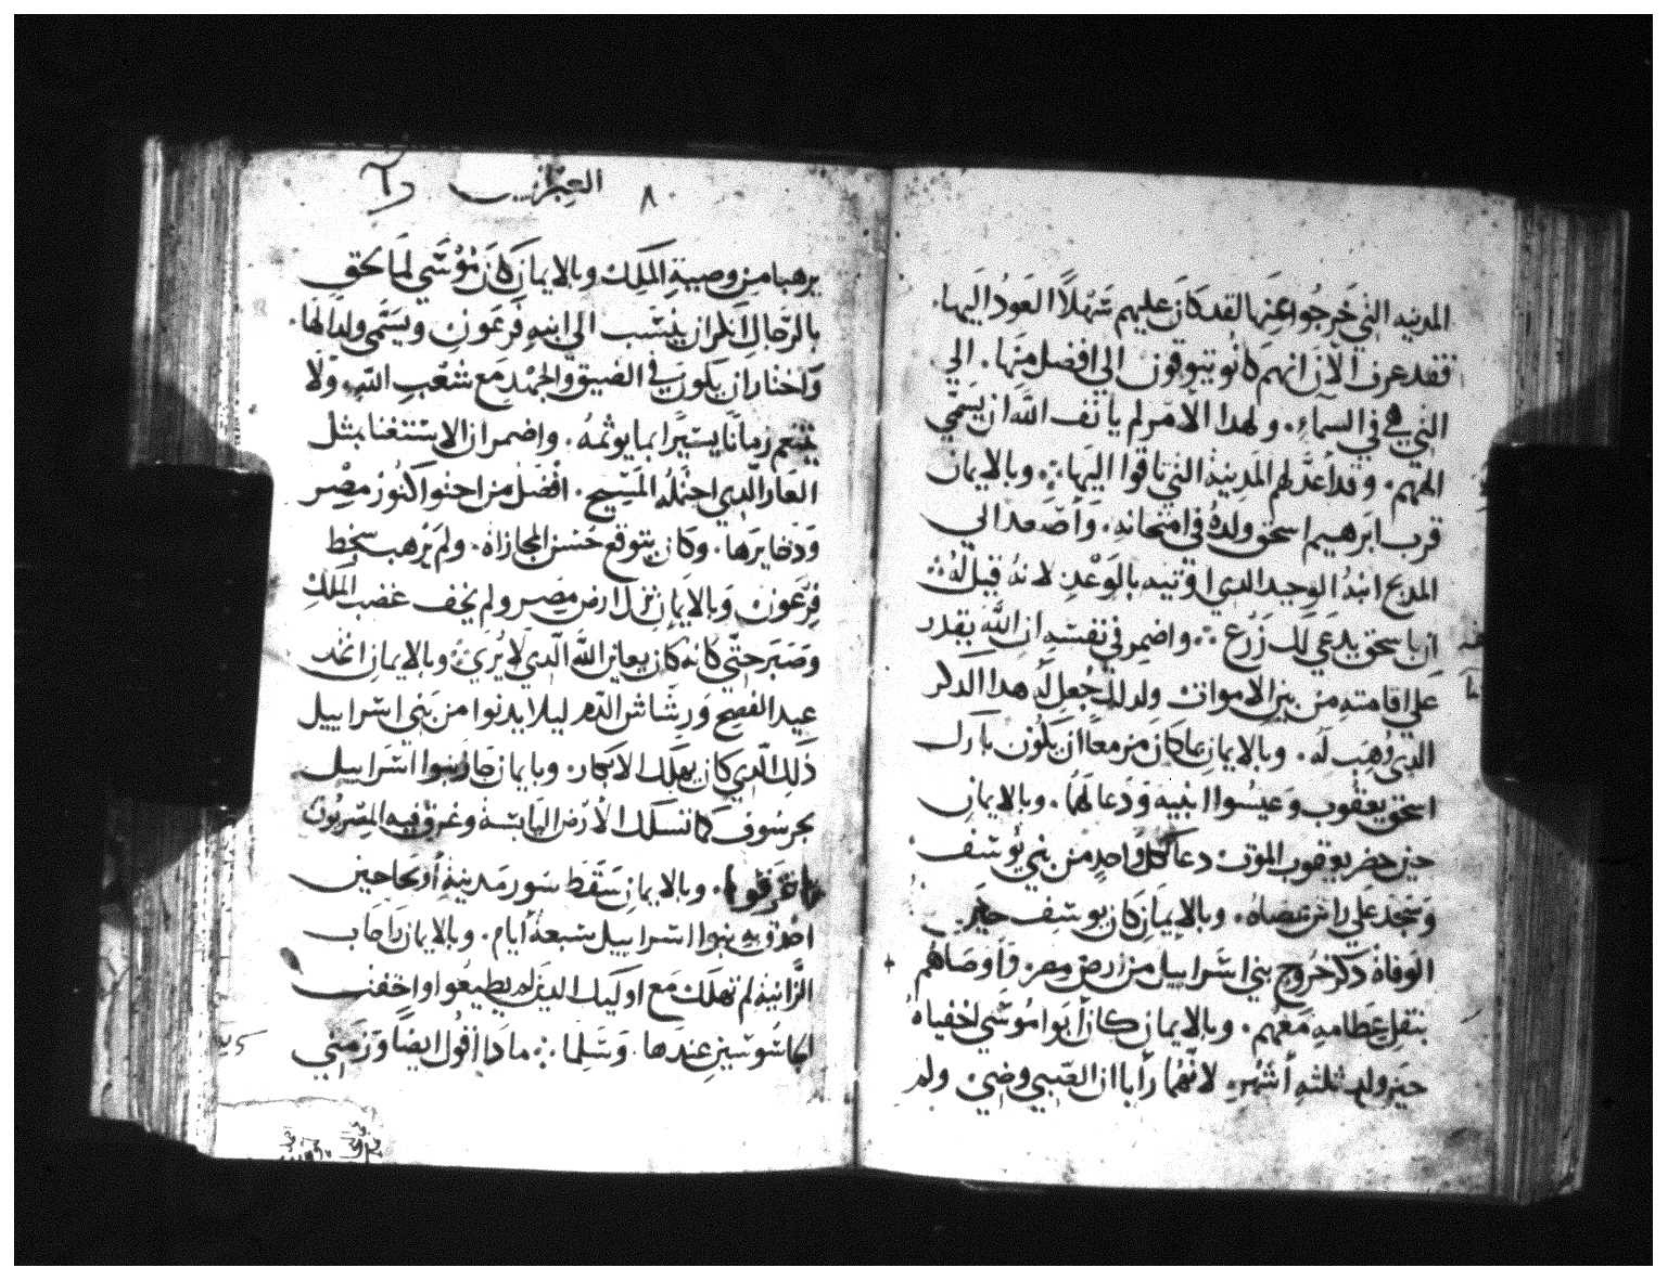 المدينه التي خرجوا عنها لقد كان عليهم سَهْلاً العَودُ اليها.
فقد عرف الآن انهم كانو يتوقون الي افضل منها. الي
التي هي في السماءِ. ولهدا الامر لم يأنف الله ان يسمّي
الههم. وقد أعدَّ لهم المَدينة التي تاقوا اليها ܀ وبالايمان
قرب ابرهيم اسحق ولدهُ في امتحانه. وَأصعد الي
المدبح ابنهُ الوحيد الدي اوتيه بالوَعْدِ لانهُ قيل لَهُ܀
ان باسحق يدعَي لك زَرْع ܀ واضمر في نفسَهِ ان الله يقدر
علي اقامتهِ من بين الاموات ولدلك جُعل لَه هدا الدكر
الدي وُهِبَ لَه. وبالايمان بما كانَ مزمعاً ان يَكُون بارك
اسحق يعقُوب وَعيسُوا ابنيه وَدَعا لهُما. وبالايمانِ
حين حضر يعقوب الموت دعا لكل وَاحدٍ من بني يُوسَف
وسَجَد علي راس عصاهُ. وبالايمانِ كان يوسف حين
الوَفاة دكر خُروج بني اسَراييل من ارض مصر. وأوصَاهُم
بنقلِ عِظامهِ مَعَهُم. وبالايمان كانَ أبَوا مُوسَي اخفياهُ
حين ولد ثلثهِ أشهُر. لانَهُما رأيا ان الصَبي وضي ولم
العبرانيين ٨
يرهبا من وصيةِ المَلك وبالايمان كانَ مُوسَي لما لحق
بالرّجال انكر ان ينسَب الي ابنهِ فرعَون ويسَمَّى ولداً لهَا.
وَاختار ان يَكون في الضيق والجهْد مَع شعْبِ الله. وَلا
يتنعم زماناً يسيَراً بما يوثمهُ. واضمر ان الاسَتغنا بمثل
العَار الّدي احتملهُ المَسيح. افضَل من احتوا كنُوز مصْر
وَدخايرَها. وكان يتوقع حَسَن المجازاه. ولم يَرْهب سخط
فرعَون وَبالايمانِ ترك ارض مصر ولم يخف غضب المَلكِ
وصَبَر حتّى كانه كان يعاين الله الّدي لا يُرَى وبالايمانِ اتخد
عيد الفصح وَرشاش الدّم ليلا يدنوا من بَني اسَراييل
ذلك الّدي كان يهلك الابكار. وبايمان جَاز بنوا اسَراييل
بحر سُوف كما تسلك الارض اليَابسَة وغرق فيه المِصْريُون
غرقوا. وبالايمانِ سَقط سَور مَدينةِ أريحَا حين
احدق به بنوا اسَراييل سَبعة أيام. وبالايمان رَاحَاب
الزَّانية لم تهلك مَع اوليك الدين لم يطيعُوا واخفت
الجاسُوسَين عندَها. وَسَلما ܀ مادا أقول ايضاً وَزمَني